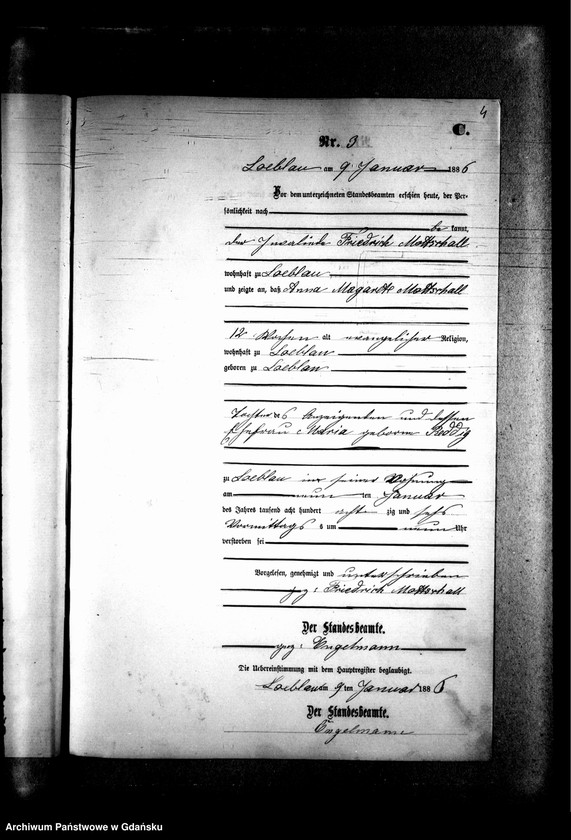 4
C.
Nr. 3
Loeblau am 9 Januar 1886
Vor dem unterzeichneten Standesbeamten erschien heute, der Per-
sönlichkeit nach
be kannt,
der Friedrich Mottschall
wohnhaft zu Loeblau
und zeigte an, daß Anna Magarete Mottschall
12 Wochen alt evangelischer Religion,
wohnhaft zu Loeblau
geboren zu Loeblau
Tochter des Anzeigenten und dessen
Ehefrau Maria geborne Reddig
zu Loeblau in seiner Wohnung
am neun ten Januar
des Jahres tausend acht hundert acht zig und sechs
Vormittags um neun Uhr
verstorben sei
Vorgelesen, genehmigt und unterschrieben
gez: Friedrich Mottschall
Der Standesbeamte.
gez: Engelmann
Die Uebereinstimmung mit dem Hauptregister beglaubigt.
Loeblau am 9 ten Januar 1886
Der Standesbeamte.
Engelmann
Archiwum Państwowe w Gdańsku